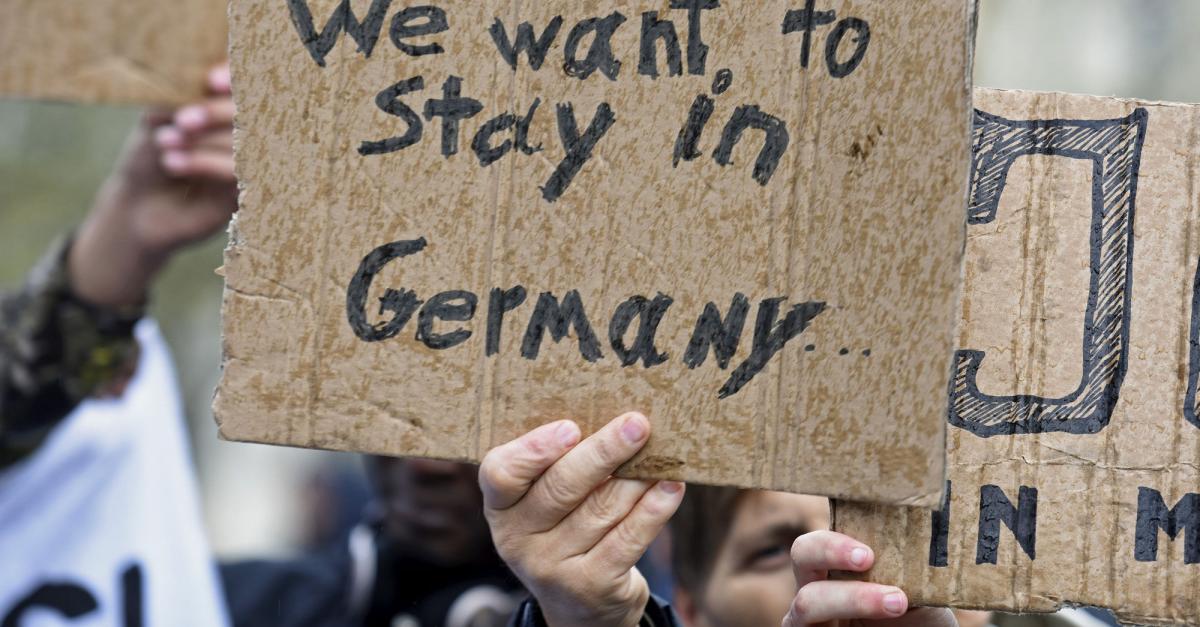 We want to
Stay in
Germany...
J
IN M